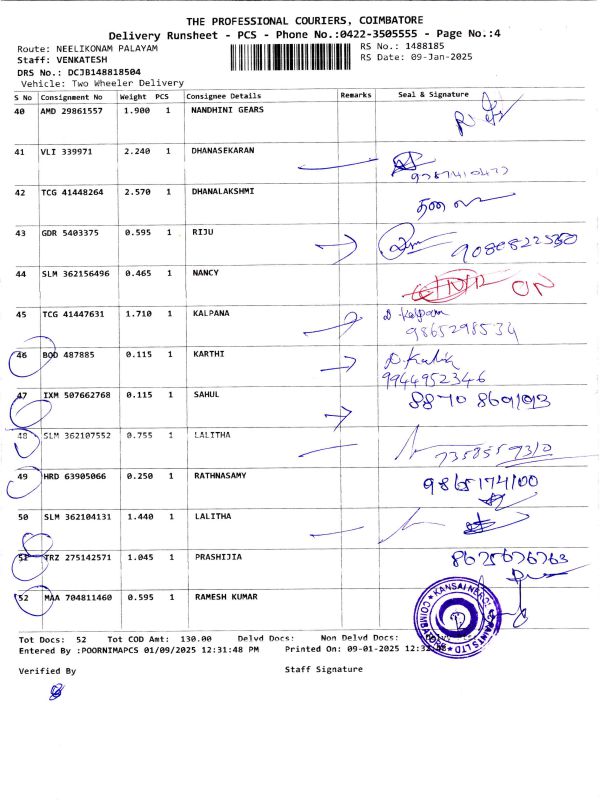 THE PROFESSIONAL COURIERS, COIMBATORE
Delivery Runsheet - PCS - Phone No.:0422-3505555 - Page No.:4
Route: NEELIKONAM PALAYAM
RS No.: 1488185
Staff: VENKATESH
RS Date: 09-Jan-2025
DRS No.: DCJB148818504
Vehicle: Two Wheeler Delivery
S No Consignment No Weight PCS Consignee Details Remarks Seal & Signature
40 AMD 29861557 1.900 1 NANDHINI GEARS
41 VLI 339971 2.240 1 DHANASEKARAN
42 TCG 41448264 2.570 1 DHANALAKSHMI
43 GDR 5403375 0.595 1 RIJU
44 SLM 362156496 0.465 1 NANCY ON
45 TCG 41447631 1.710 1 KALPANA D. Kalpana
9865298534
46 BOD 487885 0.115 1 KARTHI
9944952346
47 IXM 507662768 0.115 1 SAHUL
48 SLM 362107552 0.755 1 LALITHA
7358559310
49 HRD 63905066 0.250 1 RATHNASAMY 9865174100
50 SLM 362104131 1.440 1 LALITHA
51 TRZ 275142571 1.045 1 PRASHIJIA
52 MAA 704811460 0.595 1 RAMESH KUMAR
Tot Docs: 52 Tot COD Amt: 130.00 Delvd Docs: Non Delvd Docs:
Entered By :POORNIMAPCS 01/09/2025 12:31:48 PM Printed On: 09-01-2025
Verified By Staff Signature